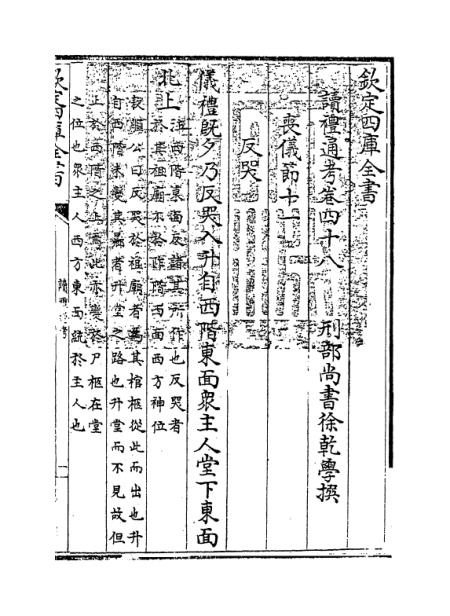 欽定四庫全書
讀禮通考卷四十八　刑部尚書徐乾學撰
喪儀節十一
反哭
儀禮既夕乃反哭入升自西階東面衆主人堂下東面
北上
注西階東面反諸其所作也反哭者
於其祖廟不於阼階西面西方神位
敖繼公曰反哭於祖廟者爲其棺柩從此而出也升
自西階未變其者升堂之路也升堂而不見故但
止於西階之上焉此亦變於尸柩在堂
之位也衆主人西方東面統於主人也
欽定四庫全書
讀禮通考